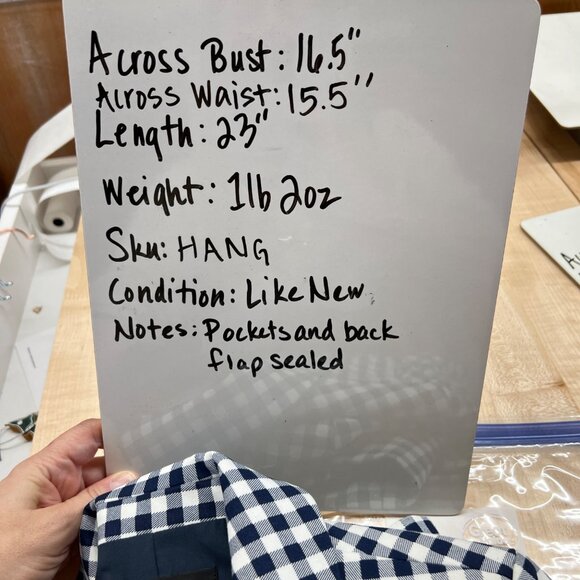 Across Bust: 16.5"
Across Waist: 15.5"
Length: 23"
Weight: 1lb 2oz
Sku: HANG
Condition: Like New
Notes: Pockets and back
flap sealed